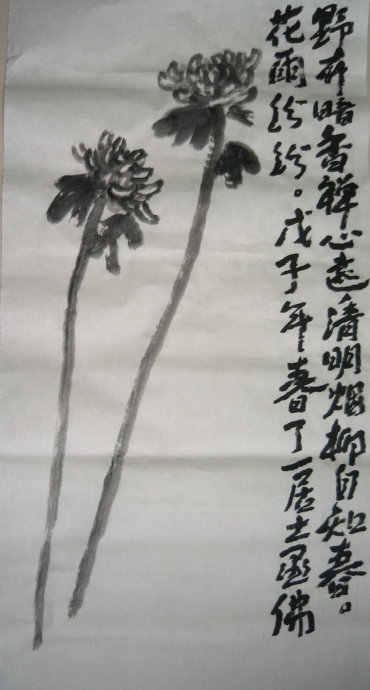 野卉暗香禅心遠清明烟柳自知春。
花雨纷纷。戊子年春了一居士墨佛